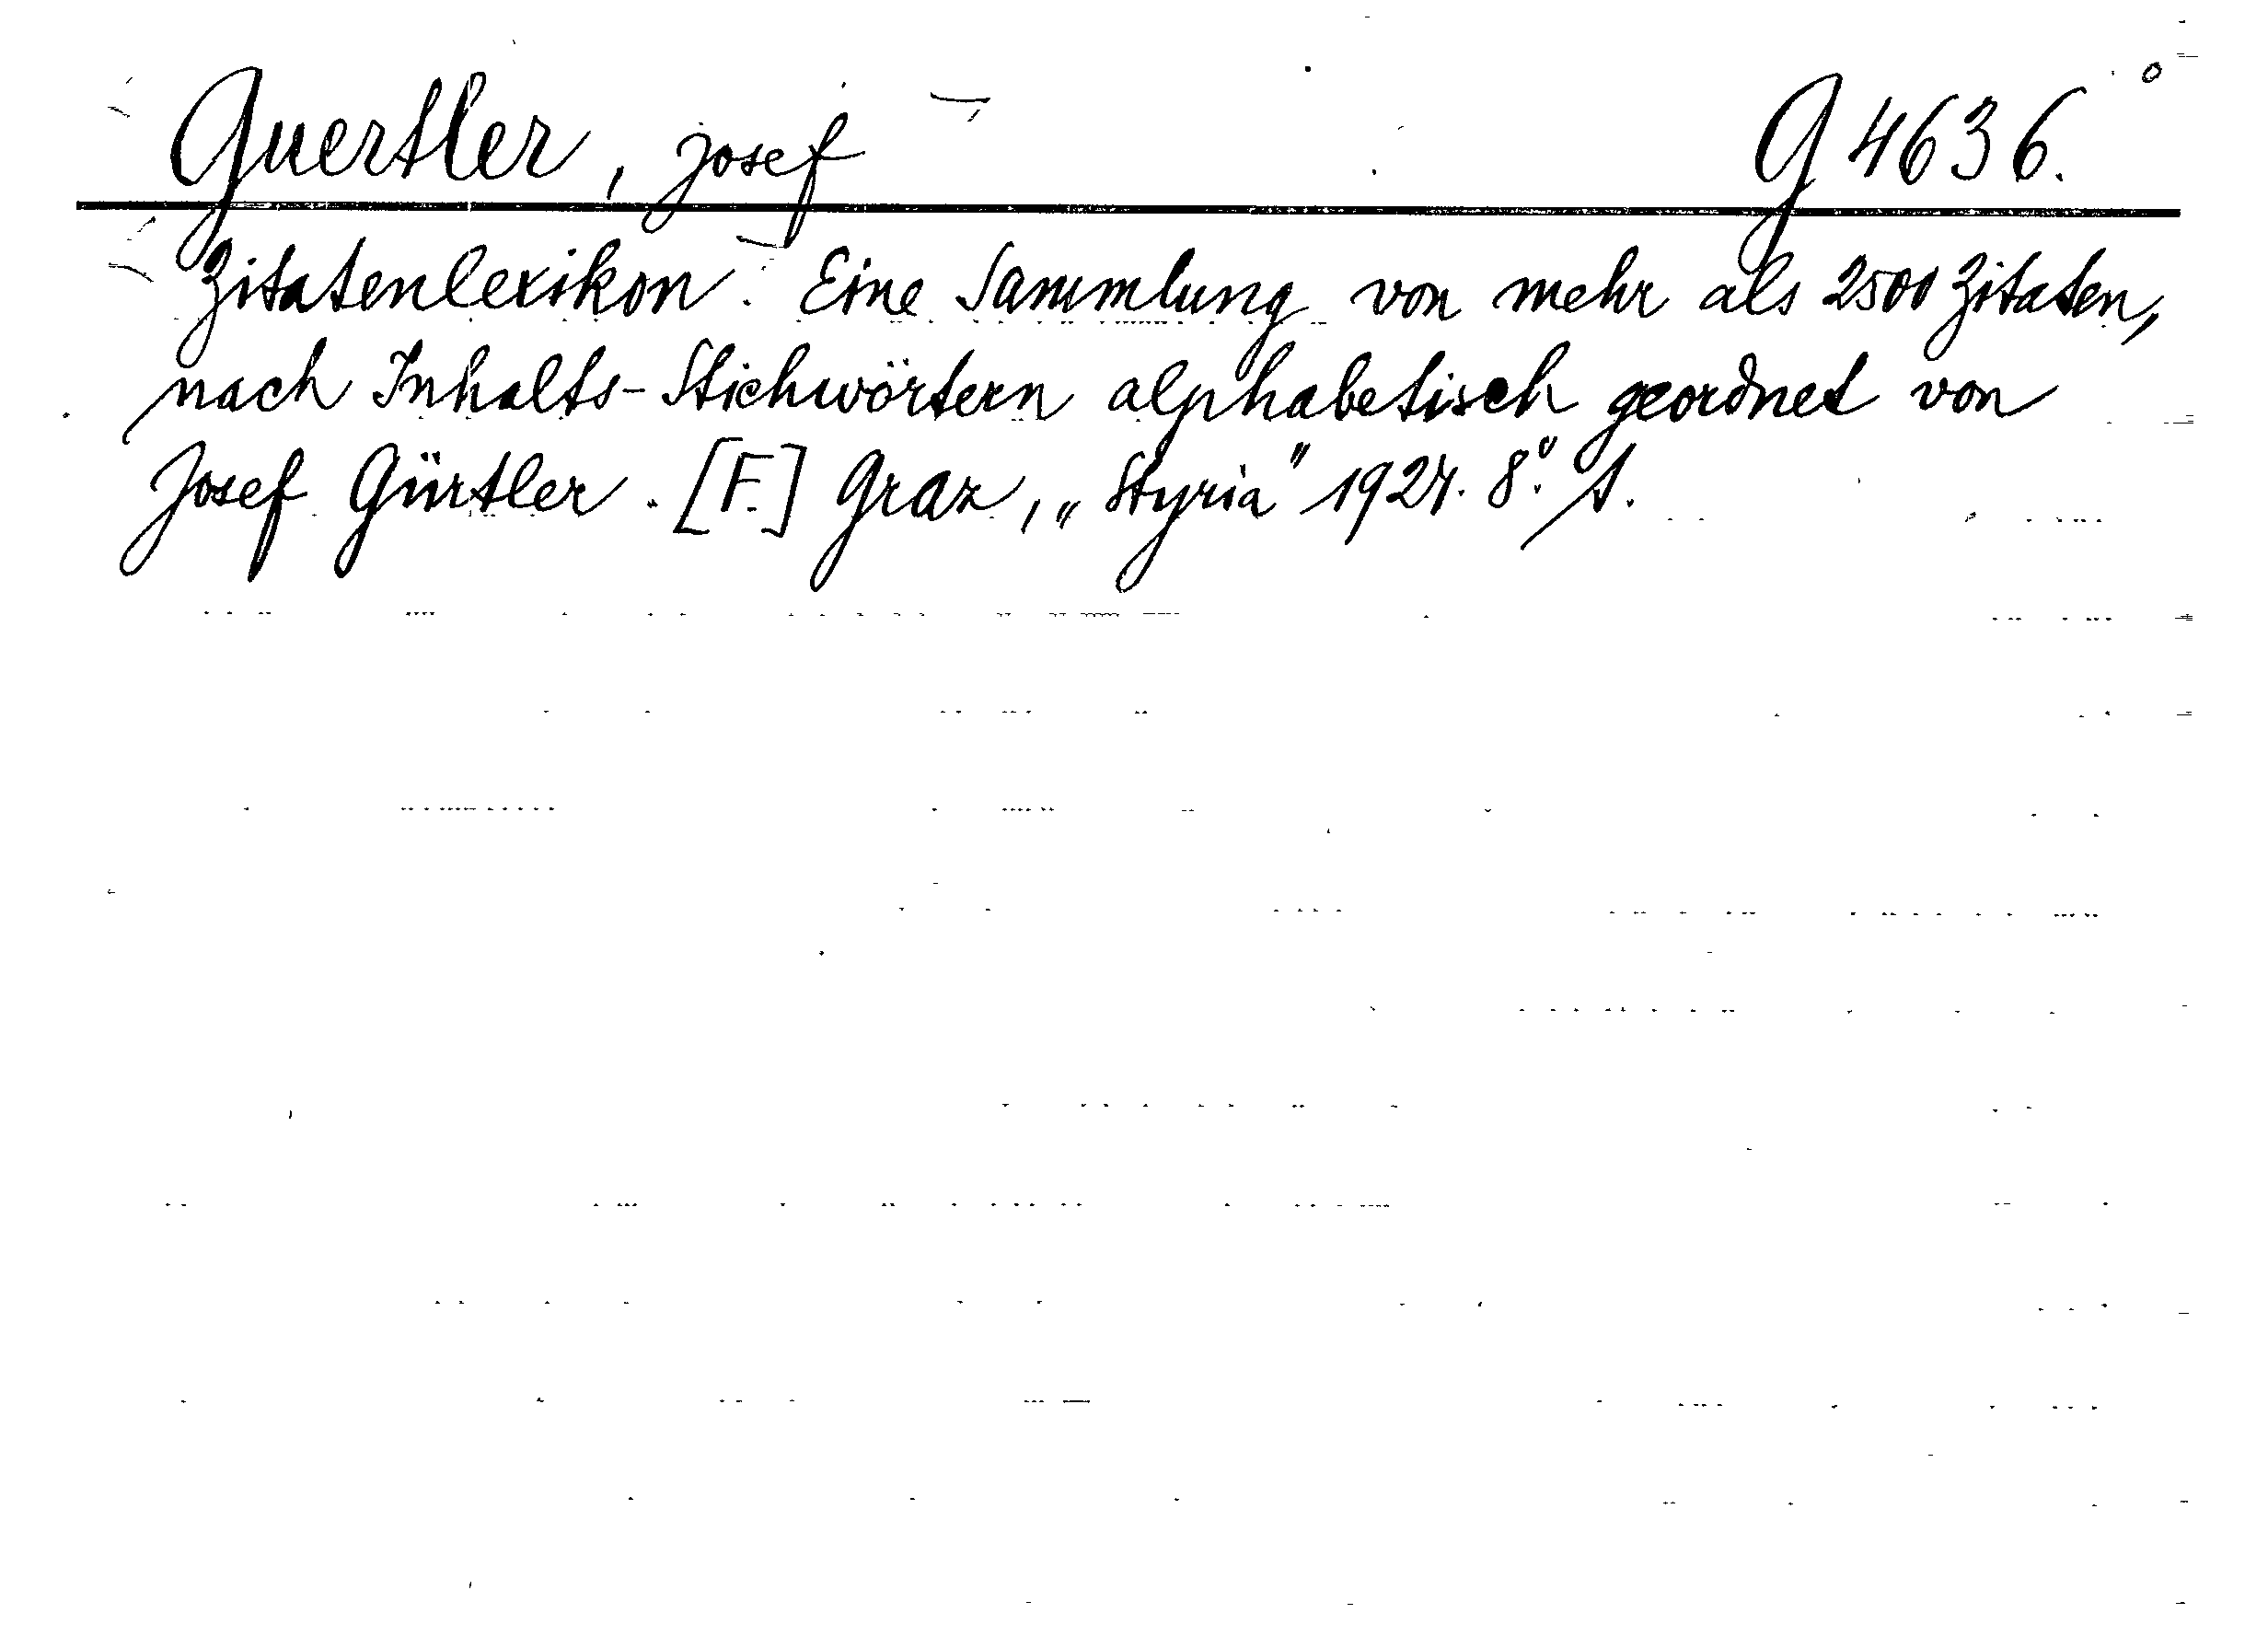 Guertler, Josef G 4636.
Zitatenlexikon. Eine Sammlung von mehr als 2500 Zitaten,
nach Inhalts-Stichwörtern alphabetisch geordnet von
Josef Gürtler. [F.] Graz, „Styria" 1924. 8°.